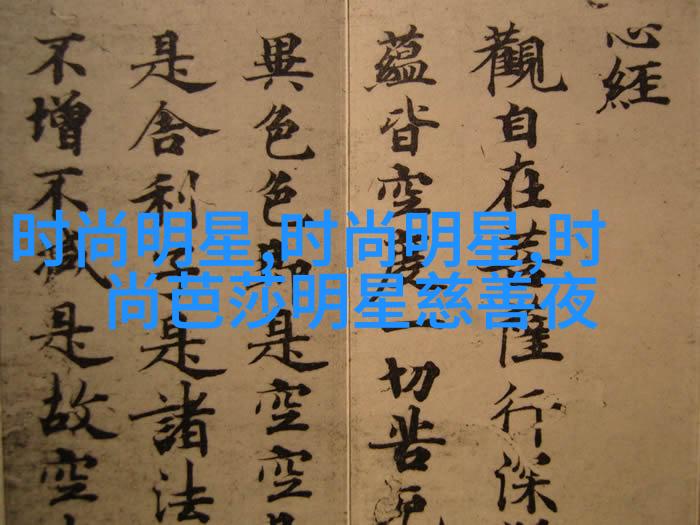 心經
觀自在菩薩行深
蘊皆空度一切苦厄
異色色即是空空
是舍利子是諸法
不增不減是故空
时尚明星,时尚明星,时
尚芭莎明星慈善夜